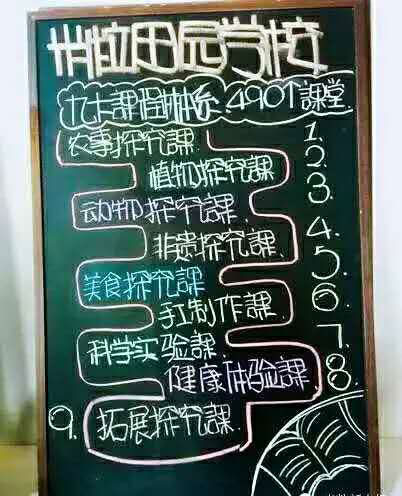 田园学校
九大課程体系 4901課堂
农事探究課 1.
植物探究課 2.
动物探究課 3.
非遗探究課 4.
美食探究課 5.
手工制作課 6.
科学实验課 7.
健康体验課 8.
9. 拓展探究課